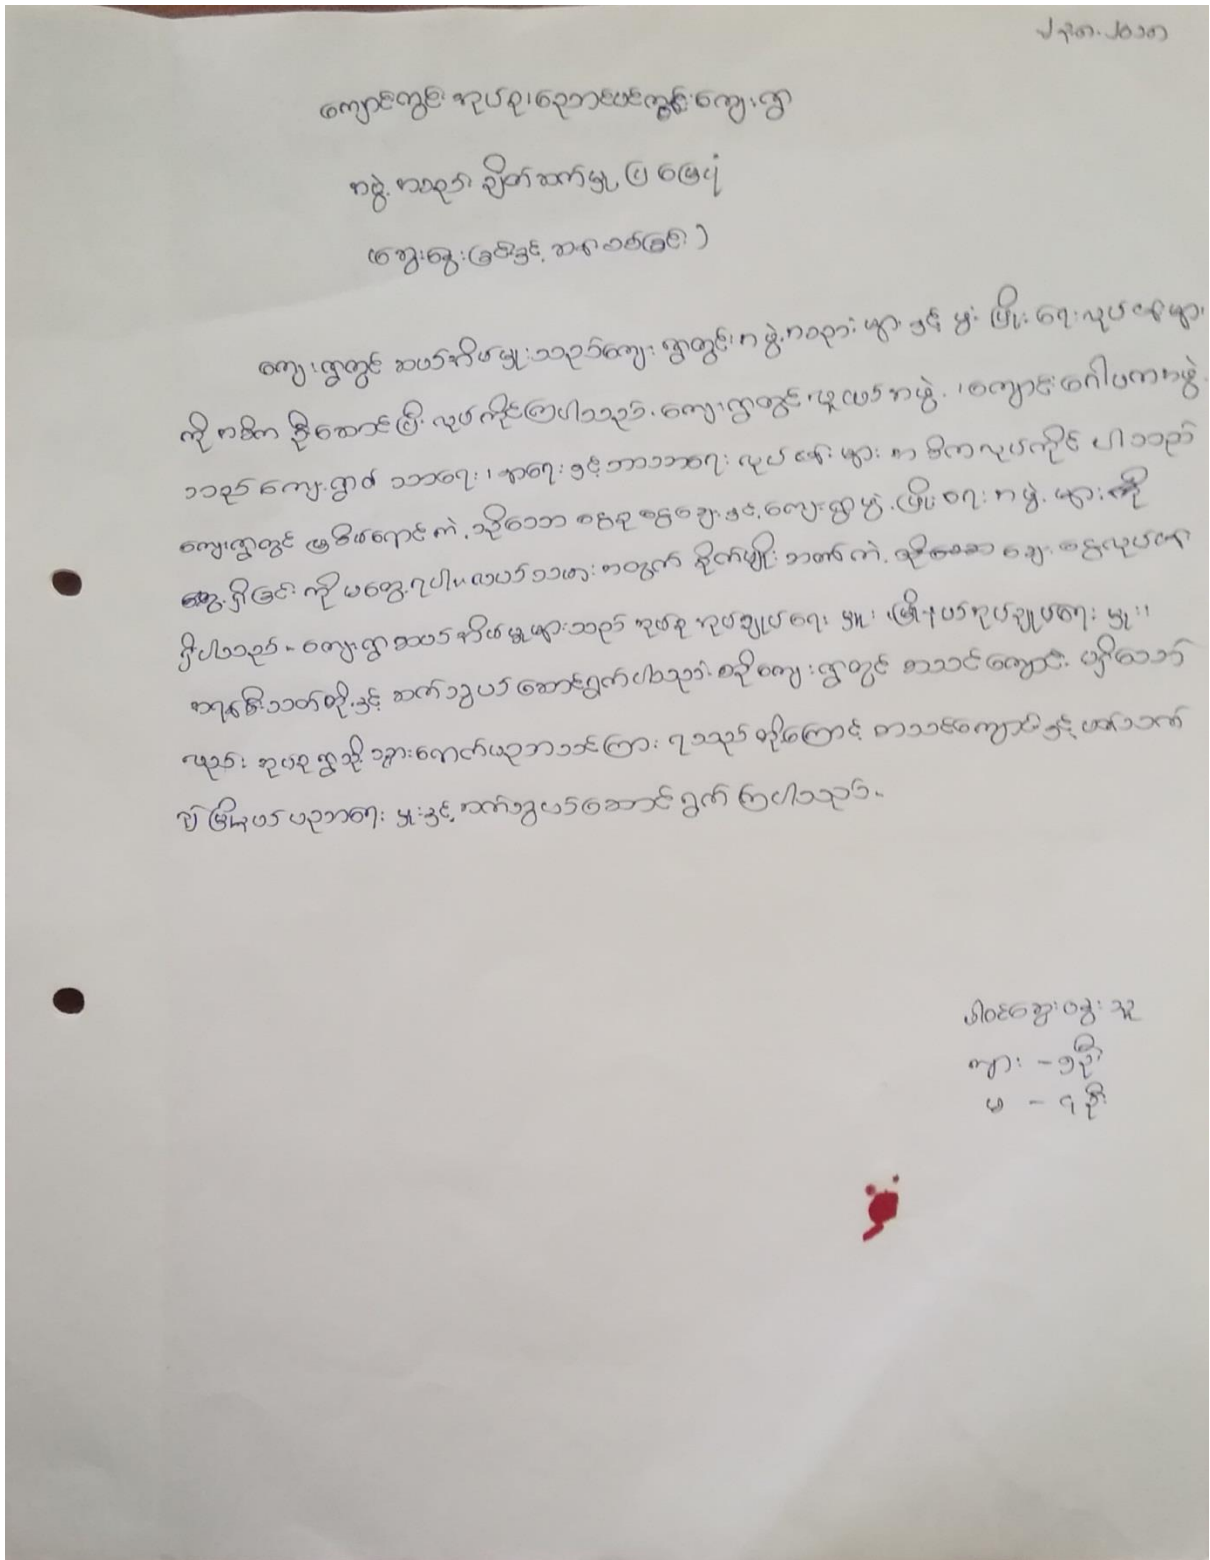 ကျောင်းကွင်း အုပ်စု၊ ညောင်ပင်ကွင်းကျေးရွာ
အဖွဲ့အစည်း ချိတ်ဆက်မှု ပြ မြေပုံ
(ဆွေးနွေးခြင်းနှင့် ဆန်းစစ်ခြင်း)
ကျေးရွာတွင် ဆယ်အိမ်မှူးသည် ကျေးရွာတွင်း အဖွဲ့အစည်းများ နှင့် ဖွံ့ဖြိုးရေးလုပ်ငန်းများ
ကို အဓိက ဦးဆောင်ပြီး လုပ်ကိုင်ကြပါသည်။ ကျေးရွာတွင် လူငယ်အဖွဲ့၊ ကျောင်းဂေါပကအဖွဲ့
သည် ကျေးရွာ၏ သာရေး၊ နာရေးနှင့်ဘာသာရေး လုပ်ငန်းများ အဓိကလုပ်ကိုင်ပါသည်
ကျေးရွာတွင် မြစိမ်းရောင်ကဲ့သို့သော ငွေစု ငွေချေးနှင့် ကျေးရွာဖွံ့ဖြိုးရေးအဖွဲ့များကို
တွေ့ရှိခြင်းကို မတွေ့ရပါ။ လယ်သမားအတွက် စိုက်ပျိုးဘဏ်ကဲ့သို့သော ချေးငွေလုပ်ငန်း
ရှိပါသည်။ ကျေးရွာဆယ်အိမ်မှူးများသည် အုပ်စု အုပ်ချုပ်ရေးမှူး၊ မြို့နယ်အုပ်ချုပ်ရေးမှူး၊
ရဲစခန်းတို့နှင့် ဆက်သွယ်ဆောင်ရွက်ပါသည်။ ၎င်းကျေးရွာတွင် စာသင်ကျောင်း မရှိသော်
လည်း အုပ်စုရွာသို့ သွားရောက်ပညာသင်ကြားရသည် တို့ကြောင့် စာသင်ကျောင်းနှင့် ပတ်သက်
၍ မြို့နယ်ပညာရေးမှူးနှင့် ဆက်သွယ်ဆောင်ရွက်ကြပါသည်။
ပါဝင်ဆွေးနွေးသူ
ကျား - ၅ဦး
မ - ၇ဦး